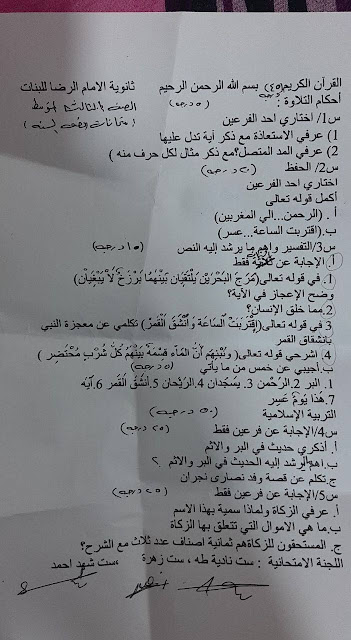 القرآن الكريم (٤٥ درجة) بسم الله الرحمن الرحيم ثانوية الامام الرضا للبنات
أحكام التلاوة : (٥ درجه) الصف الثالث المتوسط
س1/ اختاري احد الفرعين امتحانات نصف السنه
1) عرفي الاستعاذة مع ذكر آية تدل عليها
2) عرفي المد المتصل؟مع ذكر مثال لكل حرف منه )
س2/ الحفظ (٢٠ درجة)
اختاري احد الفرعين
أكمل قوله تعالى
أ . (الرحمن...الي المغربين)
ب.(اقتربت الساعة...عسر)
س3/التفسير واهم ما يرشد إليه النص (١٥ درجه)
أ الإجابة عن فقط
1. في قوله تعالى(مَرَجَ الْبَحْرَيْنِ يَلْتَقِيَانِ بَيْنَهُمَا بَرْزَخٌ لَّا يَبْغِيَانِ)
وضح الإعجاز في الآية؟
2.مما خلق الإنسان؟
3 في قوله تعالى(اقْتَرَبَتِ السَّاعَةُ وَانْشَقَّ الْقَمَرُ) تكلمي عن معجزة النبي
بانشقاق القمر
4. اشرحي قوله تعالى( وَنَبِّئْهُمْ أَنَّ الْمَاءَ قِسْمَةٌ بَيْنَهُمْ كُلُّ شِرْبٍ مُحْتَضَرٌ )
ب.أجيبي عن خمس من ما يأتي (٥ درجه)
1. البر 2.الرَّحْمَن 3. يَسْجُدَان 4.الرَّيْحَان 5.انْشَقَّ الْقَمَر 6.آيَه
7.هَذَا يَوْمٌ عَسِر
التربية الإسلامية (٥٠ درجه)
س4/الإجابة عن فرعين فقط (٢٥ درجه)
أ. أذكري حديث في البر والاثم
ب.اهم ما يرشد إليه الحديث في البر والاثم ؟
ج.تكلم عن قصة وفد نصارى نجران
س5/الإجابة عن فرعين فقط (٢٥ درجه)
أ. عرفي الزكاة ولماذا سمية بهذا الاسم
ب.ما هي الاموال التي تتعلق بها الزكاة
ج. المستحقون للزكاةهم ثمانية اصناف عدد ثلاث مع الشرح؟
اللجنة الامتحانية : ست نادية طه ، ست زهرة ،ست شهد احمد